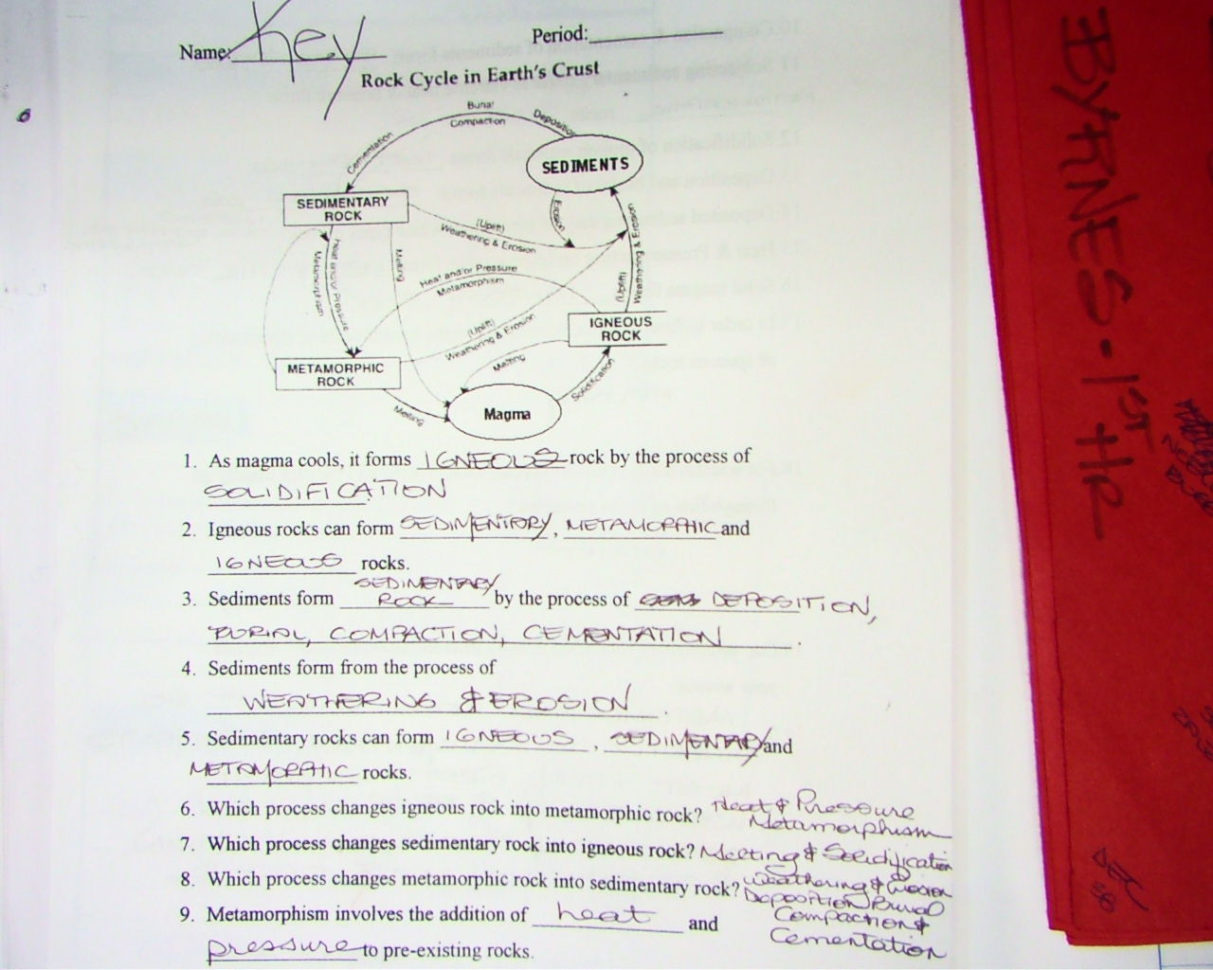 Name: Key
Period:
Rock Cycle in Earth's Crust
Burial
Compaction
Deposition
Cementation
SEDIMENTS
SEDIMENTARY
ROCK
(Uplift)
Weathering & Erosion
Erosion
(Uplift)
Weathering & Erosion
Metamorphism
Heat and/or Pressure
Melting
Heat and/or Pressure
Metamorphism
(Uplift)
Weathering & Erosion
IGNEOUS
ROCK
METAMORPHIC
ROCK
Melting
Solidification
Melting
Magma
1. As magma cools, it forms IGNEOUS rock by the process of
SOLIDIFICATION
2. Igneous rocks can form SEDIMENTARY, METAMORPHIC and
IGNEOUS rocks.
3. Sediments form SEDIMENTARY ROCK by the process of DEPOSITION,
BURIAL, COMPACTION, CEMENTATION.
4. Sediments form from the process of
WEATHERING & EROSION.
5. Sedimentary rocks can form IGNEOUS, SEDIMENTARY and
METAMORPHIC rocks.
6. Which process changes igneous rock into metamorphic rock? Heat & Pressure
Metamorphism
7. Which process changes sedimentary rock into igneous rock? Melting & Solidification
8. Which process changes metamorphic rock into sedimentary rock? Weathering & Erosion
Deposition Burial
Compaction &
Cementation
9. Metamorphism involves the addition of heat and
pressure to pre-existing rocks.
BYRNES - 1ST HR